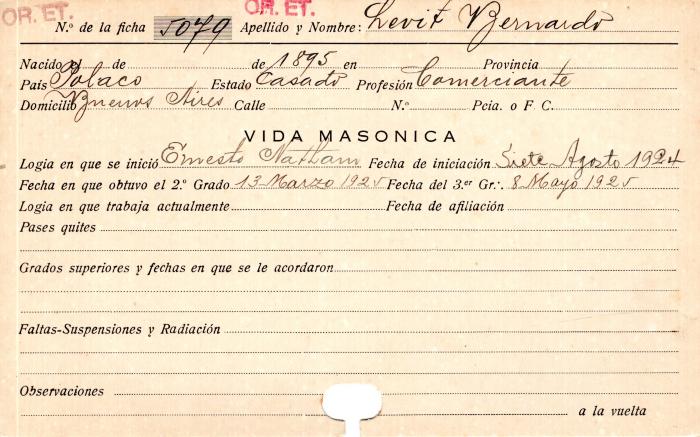 OR. ET. OR. ET.
N.º de la ficha 5079 Apellido y Nombre: Levit Bernardo
Nacido el de de 1895 en Provincia
País Polaco Estado Casado Profesión Comerciante
Domicilio Buenos Aires Calle N.º Pcia. o F. C.
VIDA MASONICA
Logia en que se inició Ernesto Nathan Fecha de iniciación Siete Agosto 1924
Fecha en que obtuvo el 2.º Grado 13 Marzo 1925 Fecha del 3.er Gr.·. 8 Mayo 1925
Logia en que trabaja actualmente Fecha de afiliación
Pases quites
Grados superiores y fechas en que se le acordaron
Faltas-Suspensiones y Radiación
Observaciones
a la vuelta